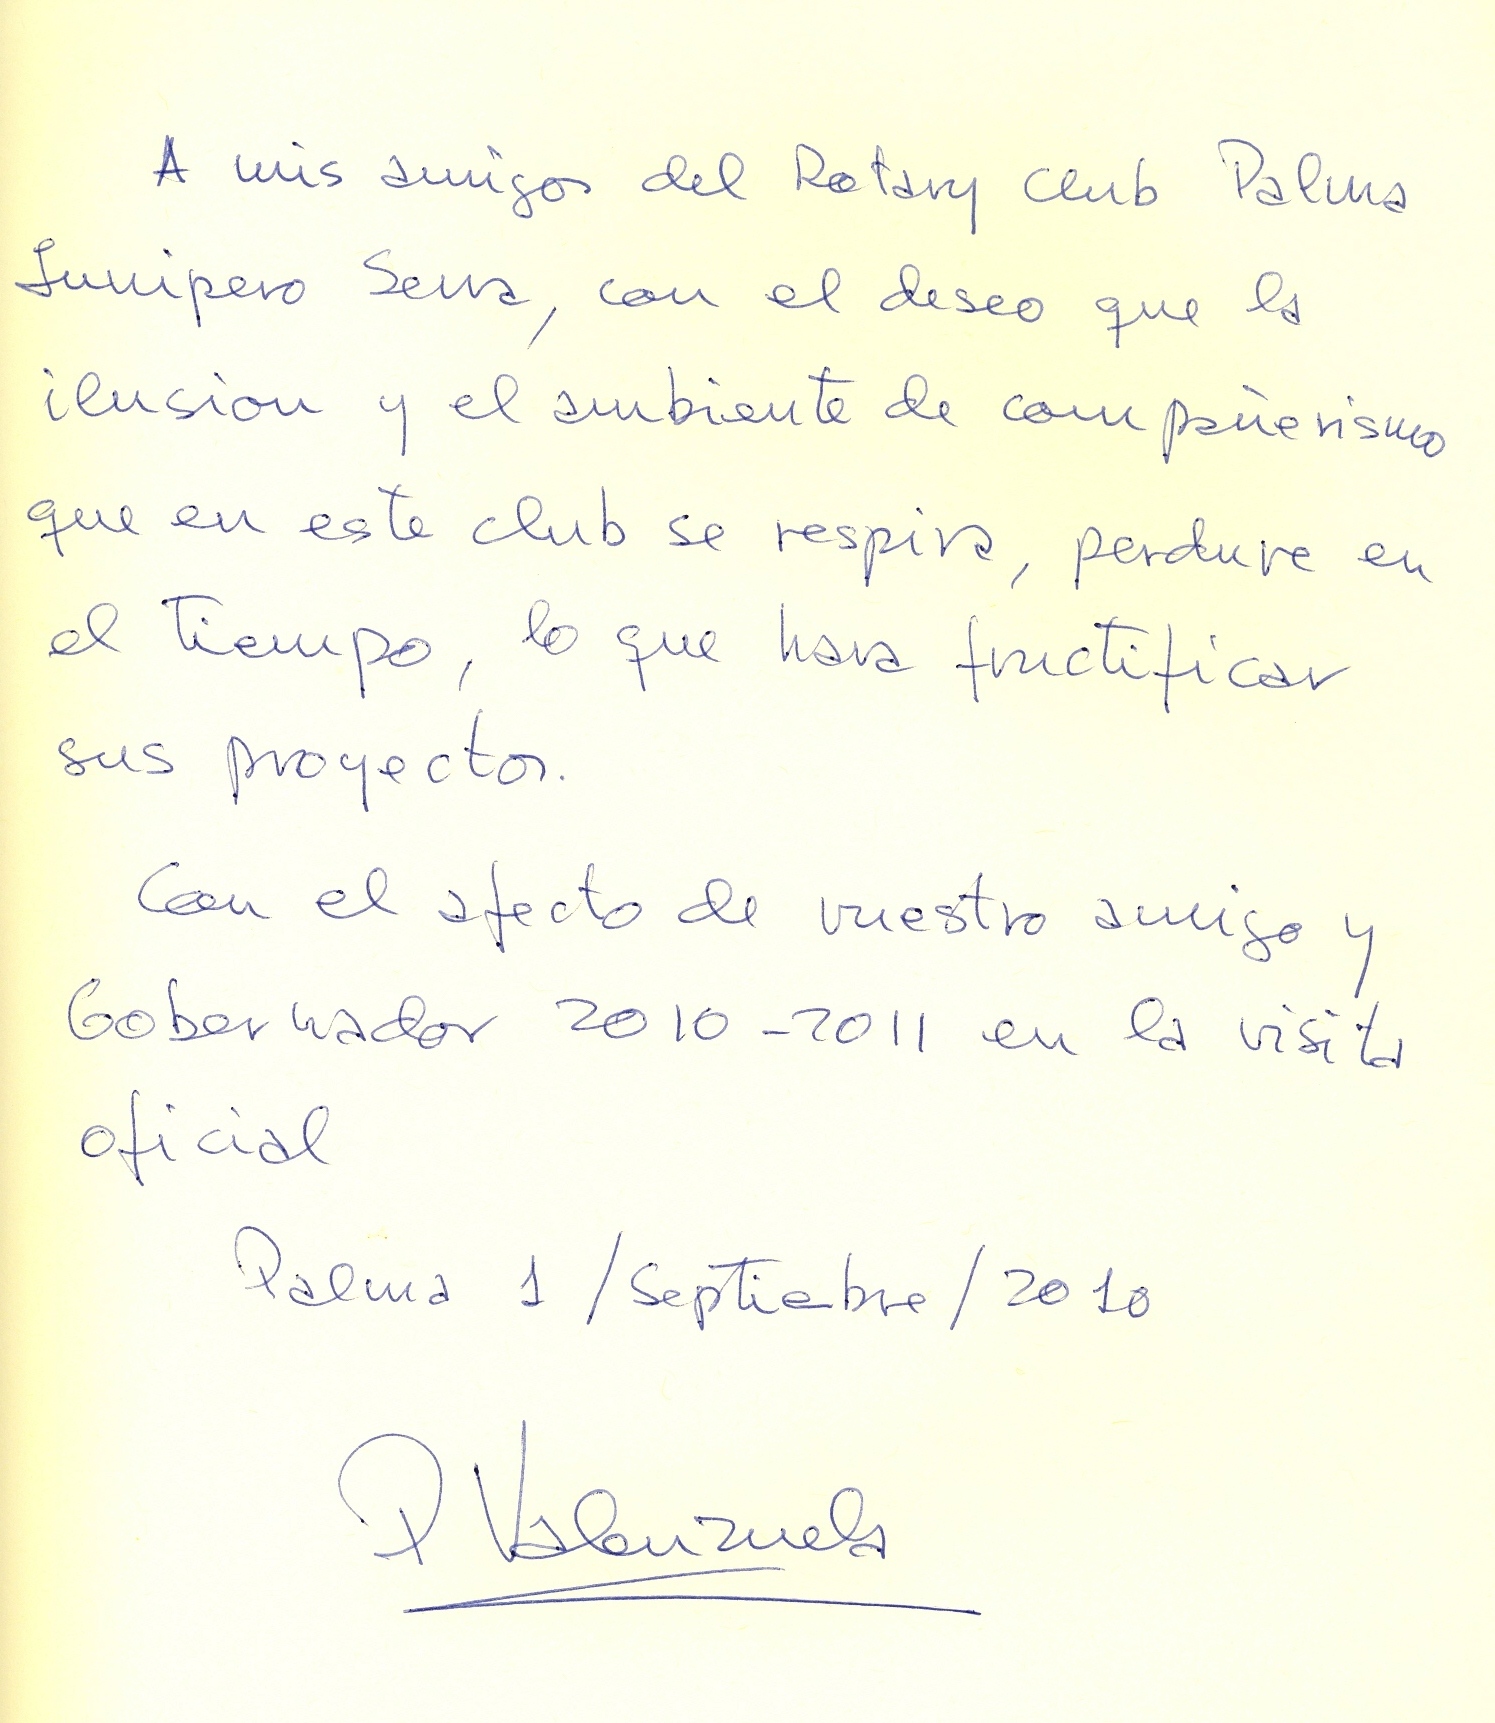 A mis amigos del Rotary Club Palma
Junipero Serra, con el deseo que la
ilusion y el ambiente de compañerismo
que en este club se respira, perdure en
el tiempo, lo que hara fructificar
sus proyectos.
Con el afecto de vuestro amigo y
Gobernador 2010-2011 en la visita
oficial
Palma 1/Septiebre/2010
P Valenzuela